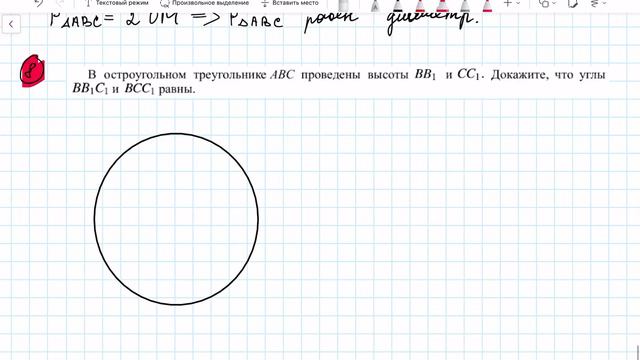 Текстовый режим Произвольное выделение Вставить место
P△ABC = 2 OM => P△ABC равен диаметр.
8
В остроугольном треугольнике ABC проведены высоты BB₁ и CC₁. Докажите, что углы
BB₁C₁ и BCC₁ равны.